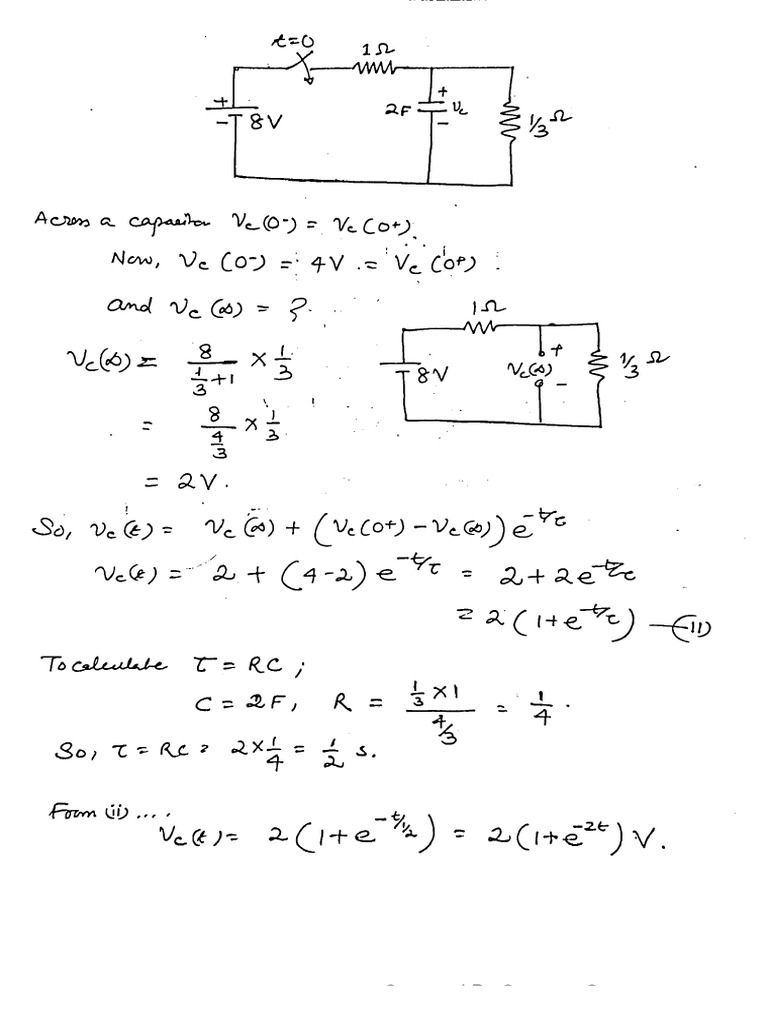 t=0
1Ω
+
-
8V
2F
+
Vc
-
1/3 Ω
Across a capacitor Vc(0-) = Vc(0+).
Now, Vc(0-) = 4V = Vc(0+)
and Vc(∞) = ?
1Ω
8V
+
Vc(∞)
-
1/3 Ω
Vc(∞) = 8/(1/3+1) × 1/3
= 8/(4/3) × 1/3
= 2V.
So, Vc(t) = Vc(∞) + (Vc(0+) - Vc(∞)) e^-t/τ
Vc(t) = 2 + (4-2) e^-t/τ = 2 + 2e^-t/τ
= 2(1+e^-t/τ) —(ii)
To calculate τ = RC ;
C = 2F, R = (1/3 × 1)/(4/3) = 1/4 .
So, τ = RC = 2×1/4 = 1/2 s.
Form (ii) ....
Vc(t) = 2(1+e^-t/1/2) = 2(1+e^-2t) V.